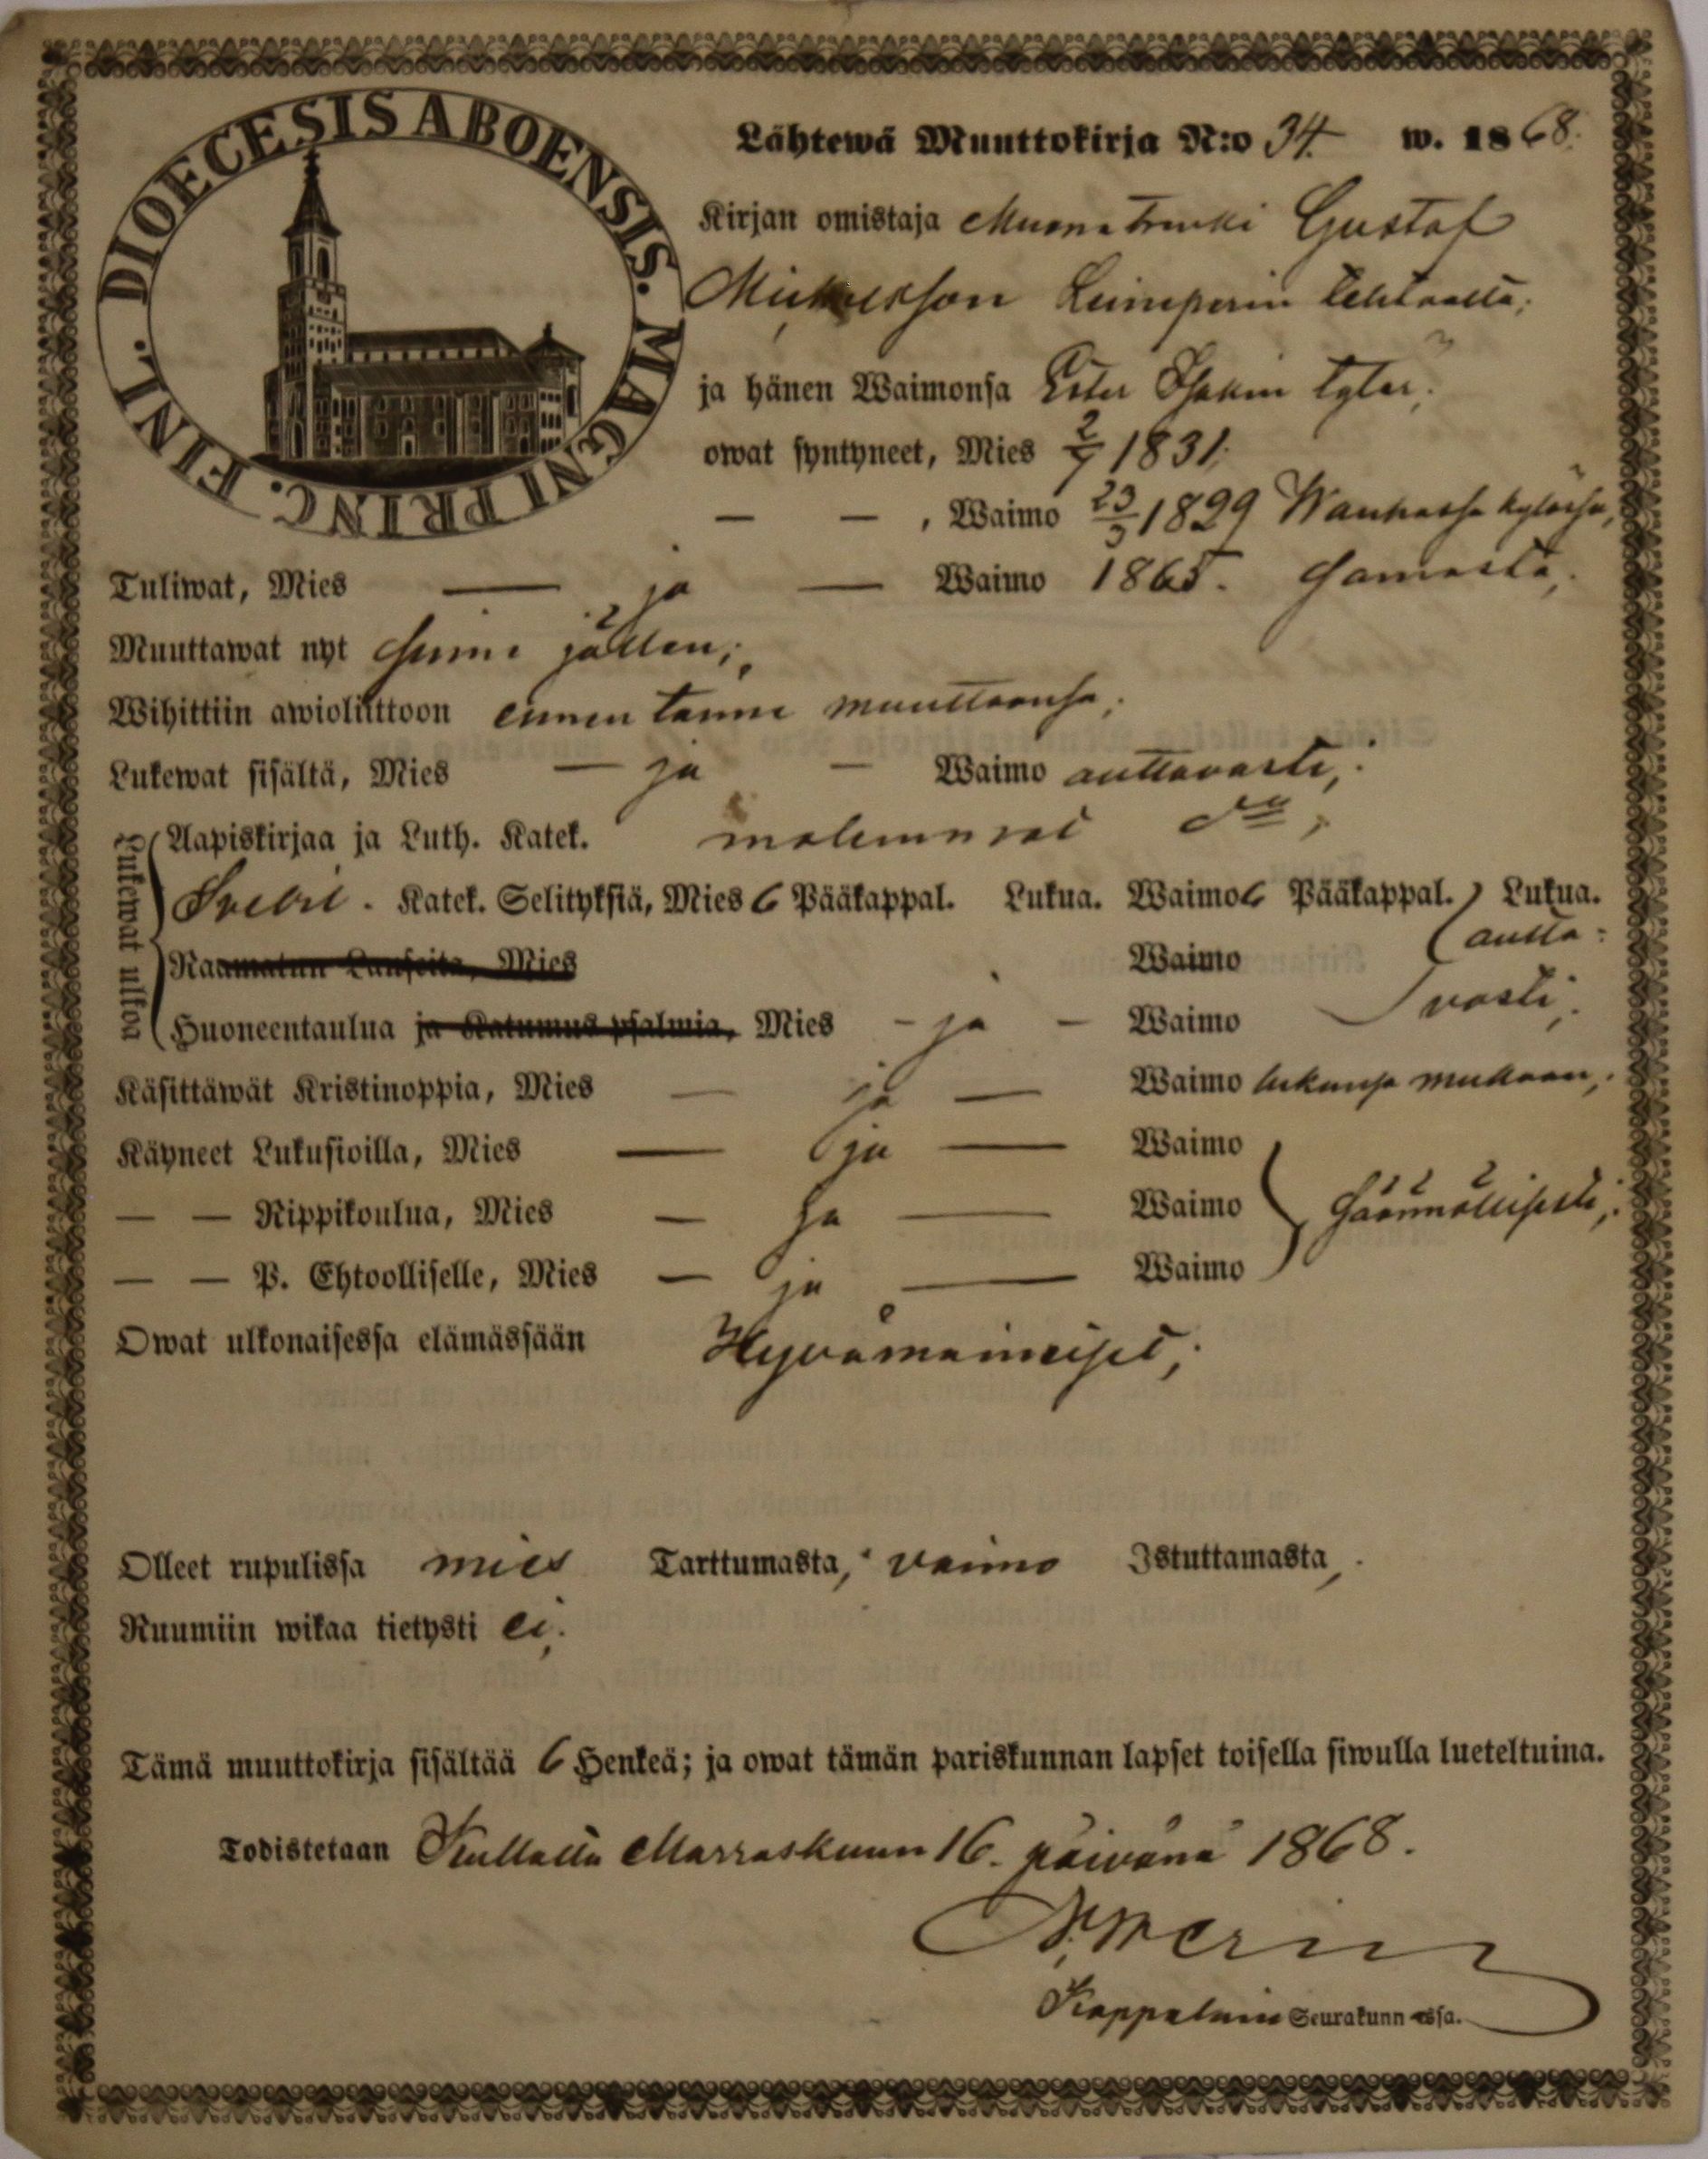 DIOECESIS ABOENSIS. MAGNI PRINC. FINL.
Lähtewä Muuttokirja N:o 34. w. 1868.
Kirjan omistaja Muona trenki Gustaf
Leineperin tehtaalta;
ja hänen Waimonsa Ester Isakin tytär;
owat syntyneet, Mies 2/7 1831;
— — , Waimo 23/3 1829 Wanhassa kylässä,
Tuliwat, Mies — ja — Waimo 1865. Samasta;
Muuttawat nyt sinne jällen;
Wihittiin awioliittoon ennen tänne muuttoansa;
Lukewat sisältä, Mies — ja — Waimo auttavasti;
Lukewat ulkoa
Aapiskirjaa ja Luth. Katek. molemmat
Svebil. Katek. Selityksiä, Mies 6 Pääkappal. Lukua. Waimo 6 Pääkappal. Lukua.
Raamatun Lauseita, Mies Waimo autta=
Huoneentaulua ja Katumus psalmia, Mies - ja - Waimo vasti;
Käsittäwät Kristinoppia, Mies — ja — Waimo lukunsa mukaan;
Käyneet Lukusioilla, Mies — ja — Waimo
— — Rippikoulua, Mies — ja — Waimo Säännöllisesti;
— — P. Ehtoolliselle, Mies — ja — Waimo
Owat ulkonaisessa elämässään Hyvämaineiset;
Olleet rupulissa mies Tarttumasta, vaimo Istuttamasta,
Ruumiin wikaa tietysti ei.
Tämä muuttokirja sisältää 6 Henkeä; ja owat tämän pariskunnan lapset toisella siwulla lueteltuina.
Todistetaan Kullalla Marraskuun 16. päivänä 1868.
Kappalaine Seurakunnassa.